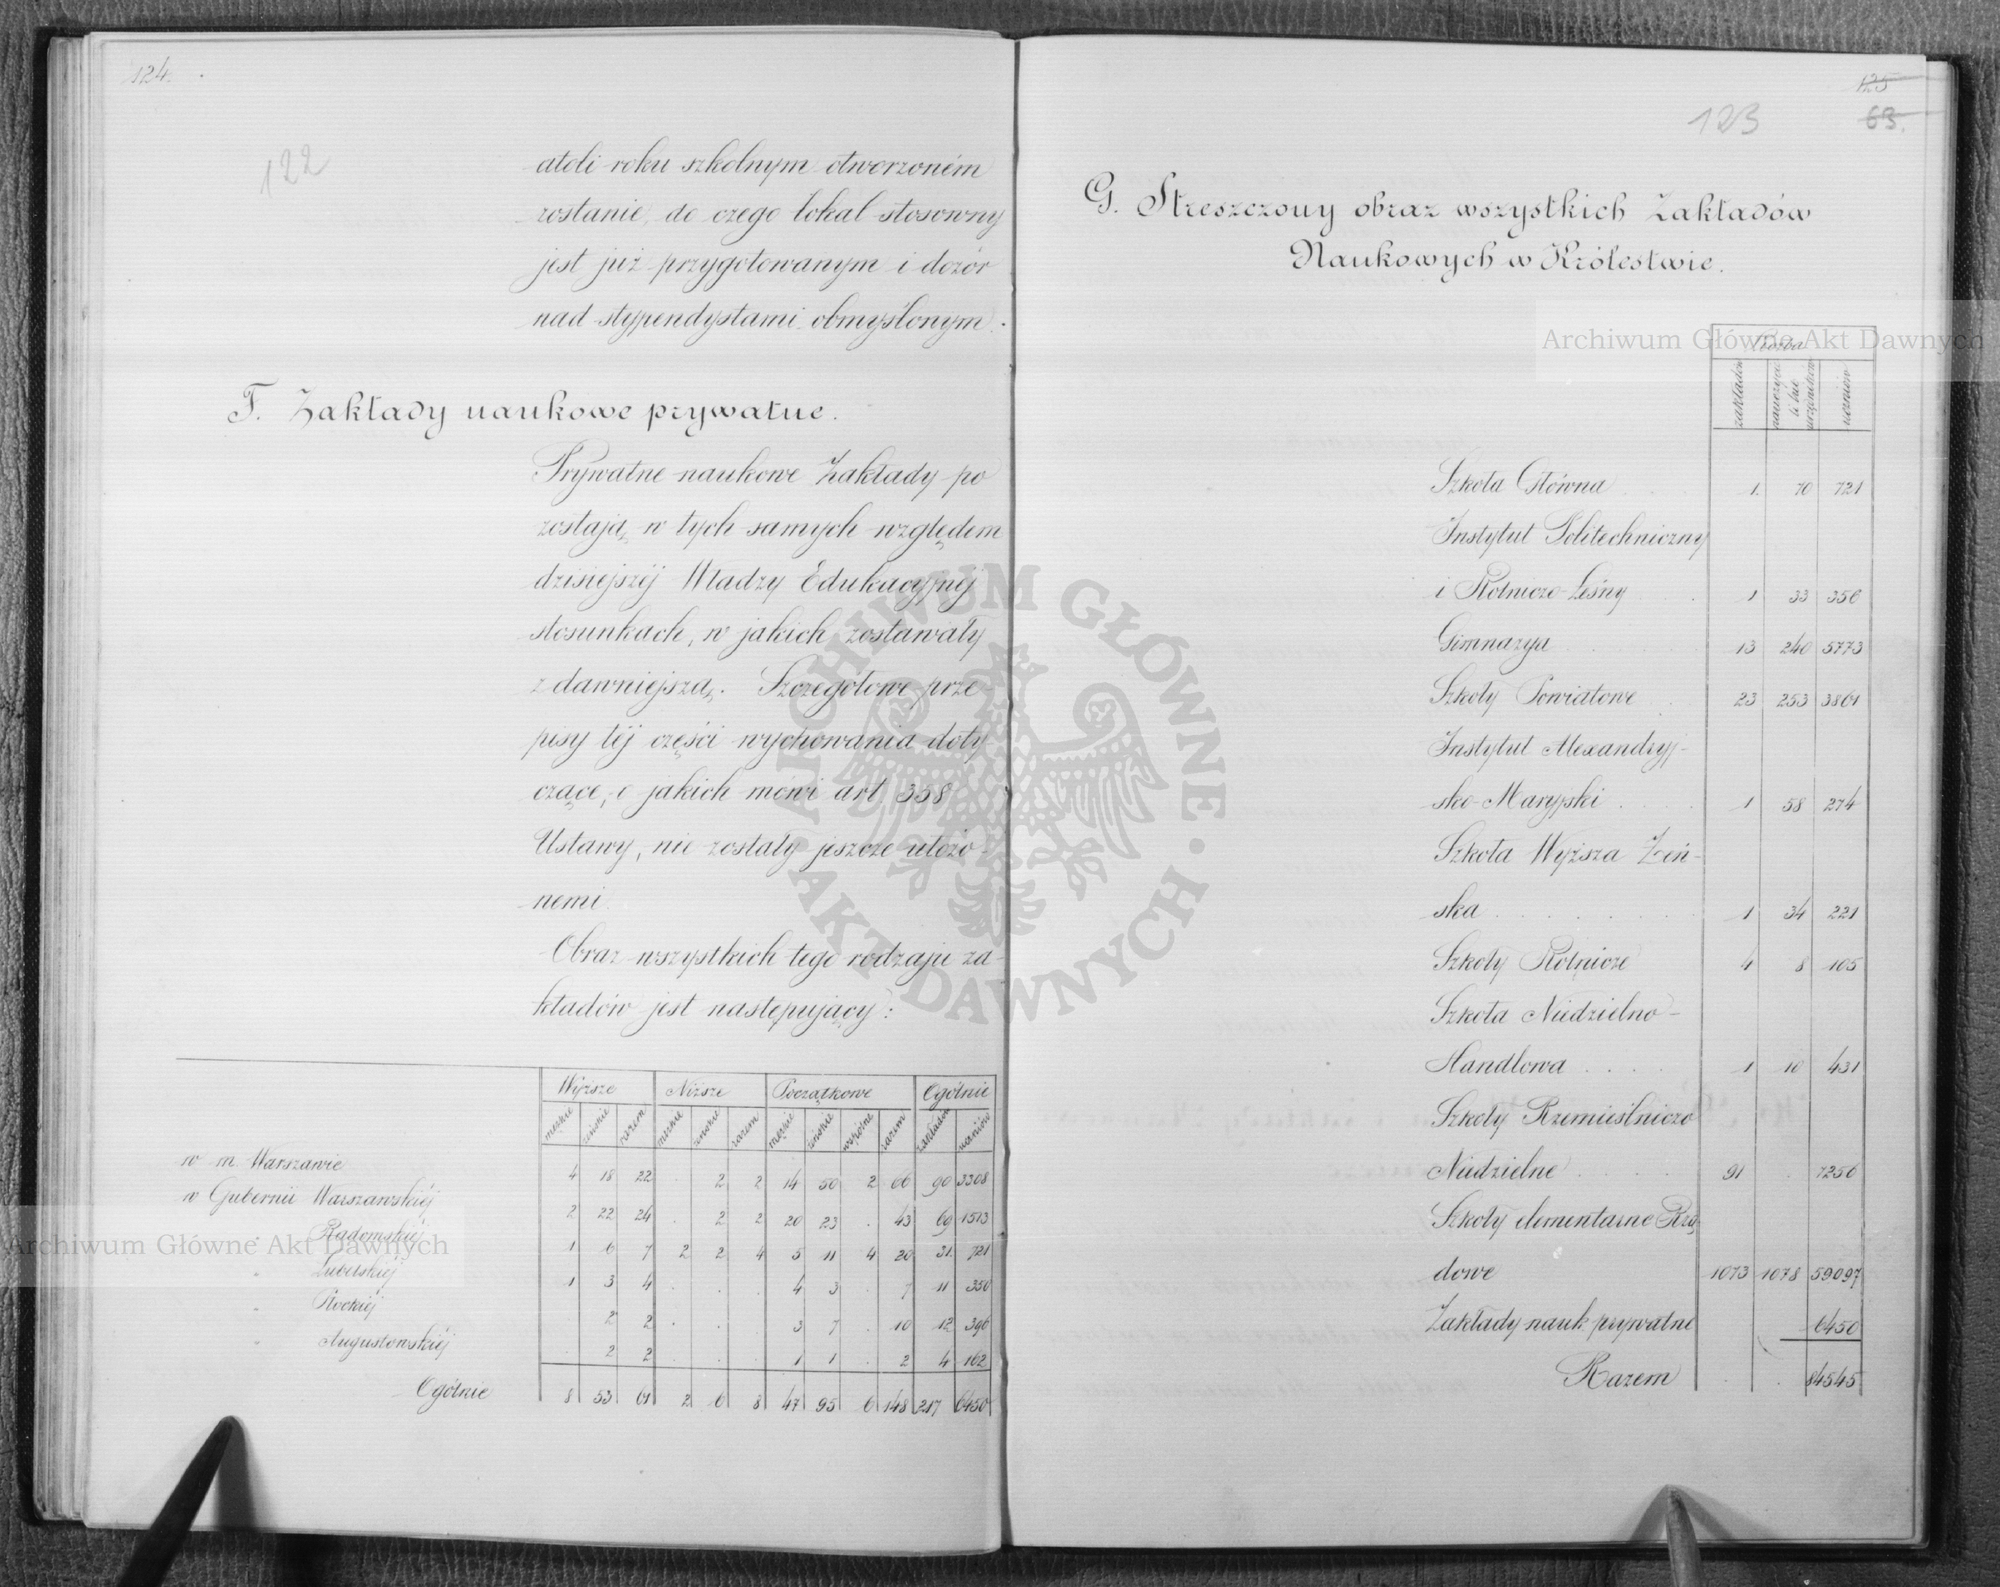 124.
122
atoli roku szkolnym otworzoném
zostanie, do czego lokal stosowny
jest już przygotowanym i dozór
nad stypendystami obmyślonym.
F. Zakłady naukowe prywatne.
Prywatne naukowe Zakłady po
zostają, w tych samych względem
dzisiejszéj Władzy Edukacyjnéj
stosunkach, w jakich zostawały
z dawniejszą. Szczegółowe prze-
pisy téj części wychowania doty
czące, o jakich mówi art 358
Ustawy, nie zostały jeszcze ułożo-
nemi.
Obraz wszystkich tego rodzaju za-
kładów jest następujący:
Wyższe Niższe Początkowe Ogólnie
męzkie żeńskie razem męzkie żeńskie razem męzkie żeńskie wspólne razem zakładów uczniów
w m. Warszawie 4 18 22 . 2 2 14 50 2 66 90 3308
w Gubernii Warszawskiéj 2 22 24 . 2 2 20 23 . 43 69 1513
" Radomskiéj 1 6 7 2 2 4 5 11 4 20 31 721
" Lubelskiéj 1 3 4 . . . 4 3 . 7 11 350
" Płockiéj . 2 2 . . . 3 7 . 10 12 396
" Augustowskiéj . 2 2 . . . 1 1 . 2 4 162
Ogólnie 8 53 61 2 6 8 47 95 6 148 217 6450
125
123
63.
G. Streszczony obraz wszystkich Zakładów
Naukowych w Królestwie.
Liczba
zakładów nauczycieli lub urzędników uczniów
Szkoła Główna 1. 70 721
Instytut Politechniczny
i Rolniczo-Leśny 1 33 356
Gimnazya 13 240 5773
Szkoły Powiatowe 23 253 3861
Instytut Alexandryj-
sko-Maryjski 1 58 274
Szkoła Wyższa Żeń-
ska 1 34 221
Szkoły Rolnicze 4 8 105
Szkoła Niedzielno-
Handlowa 1 10 431
Szkoły Rzemieślniczo
Niedzielne 91 . 7256
Szkoły elementarne Rzą-
dowe 1073 1078 59097
Zakłady nauk prywatne 6450
Razem . . 84545
Archiwum Główne Akt Dawnych
Archiwum Główne Akt Dawnych
· ARCHIWUM GŁÓWNE · AKT DAWNYCH